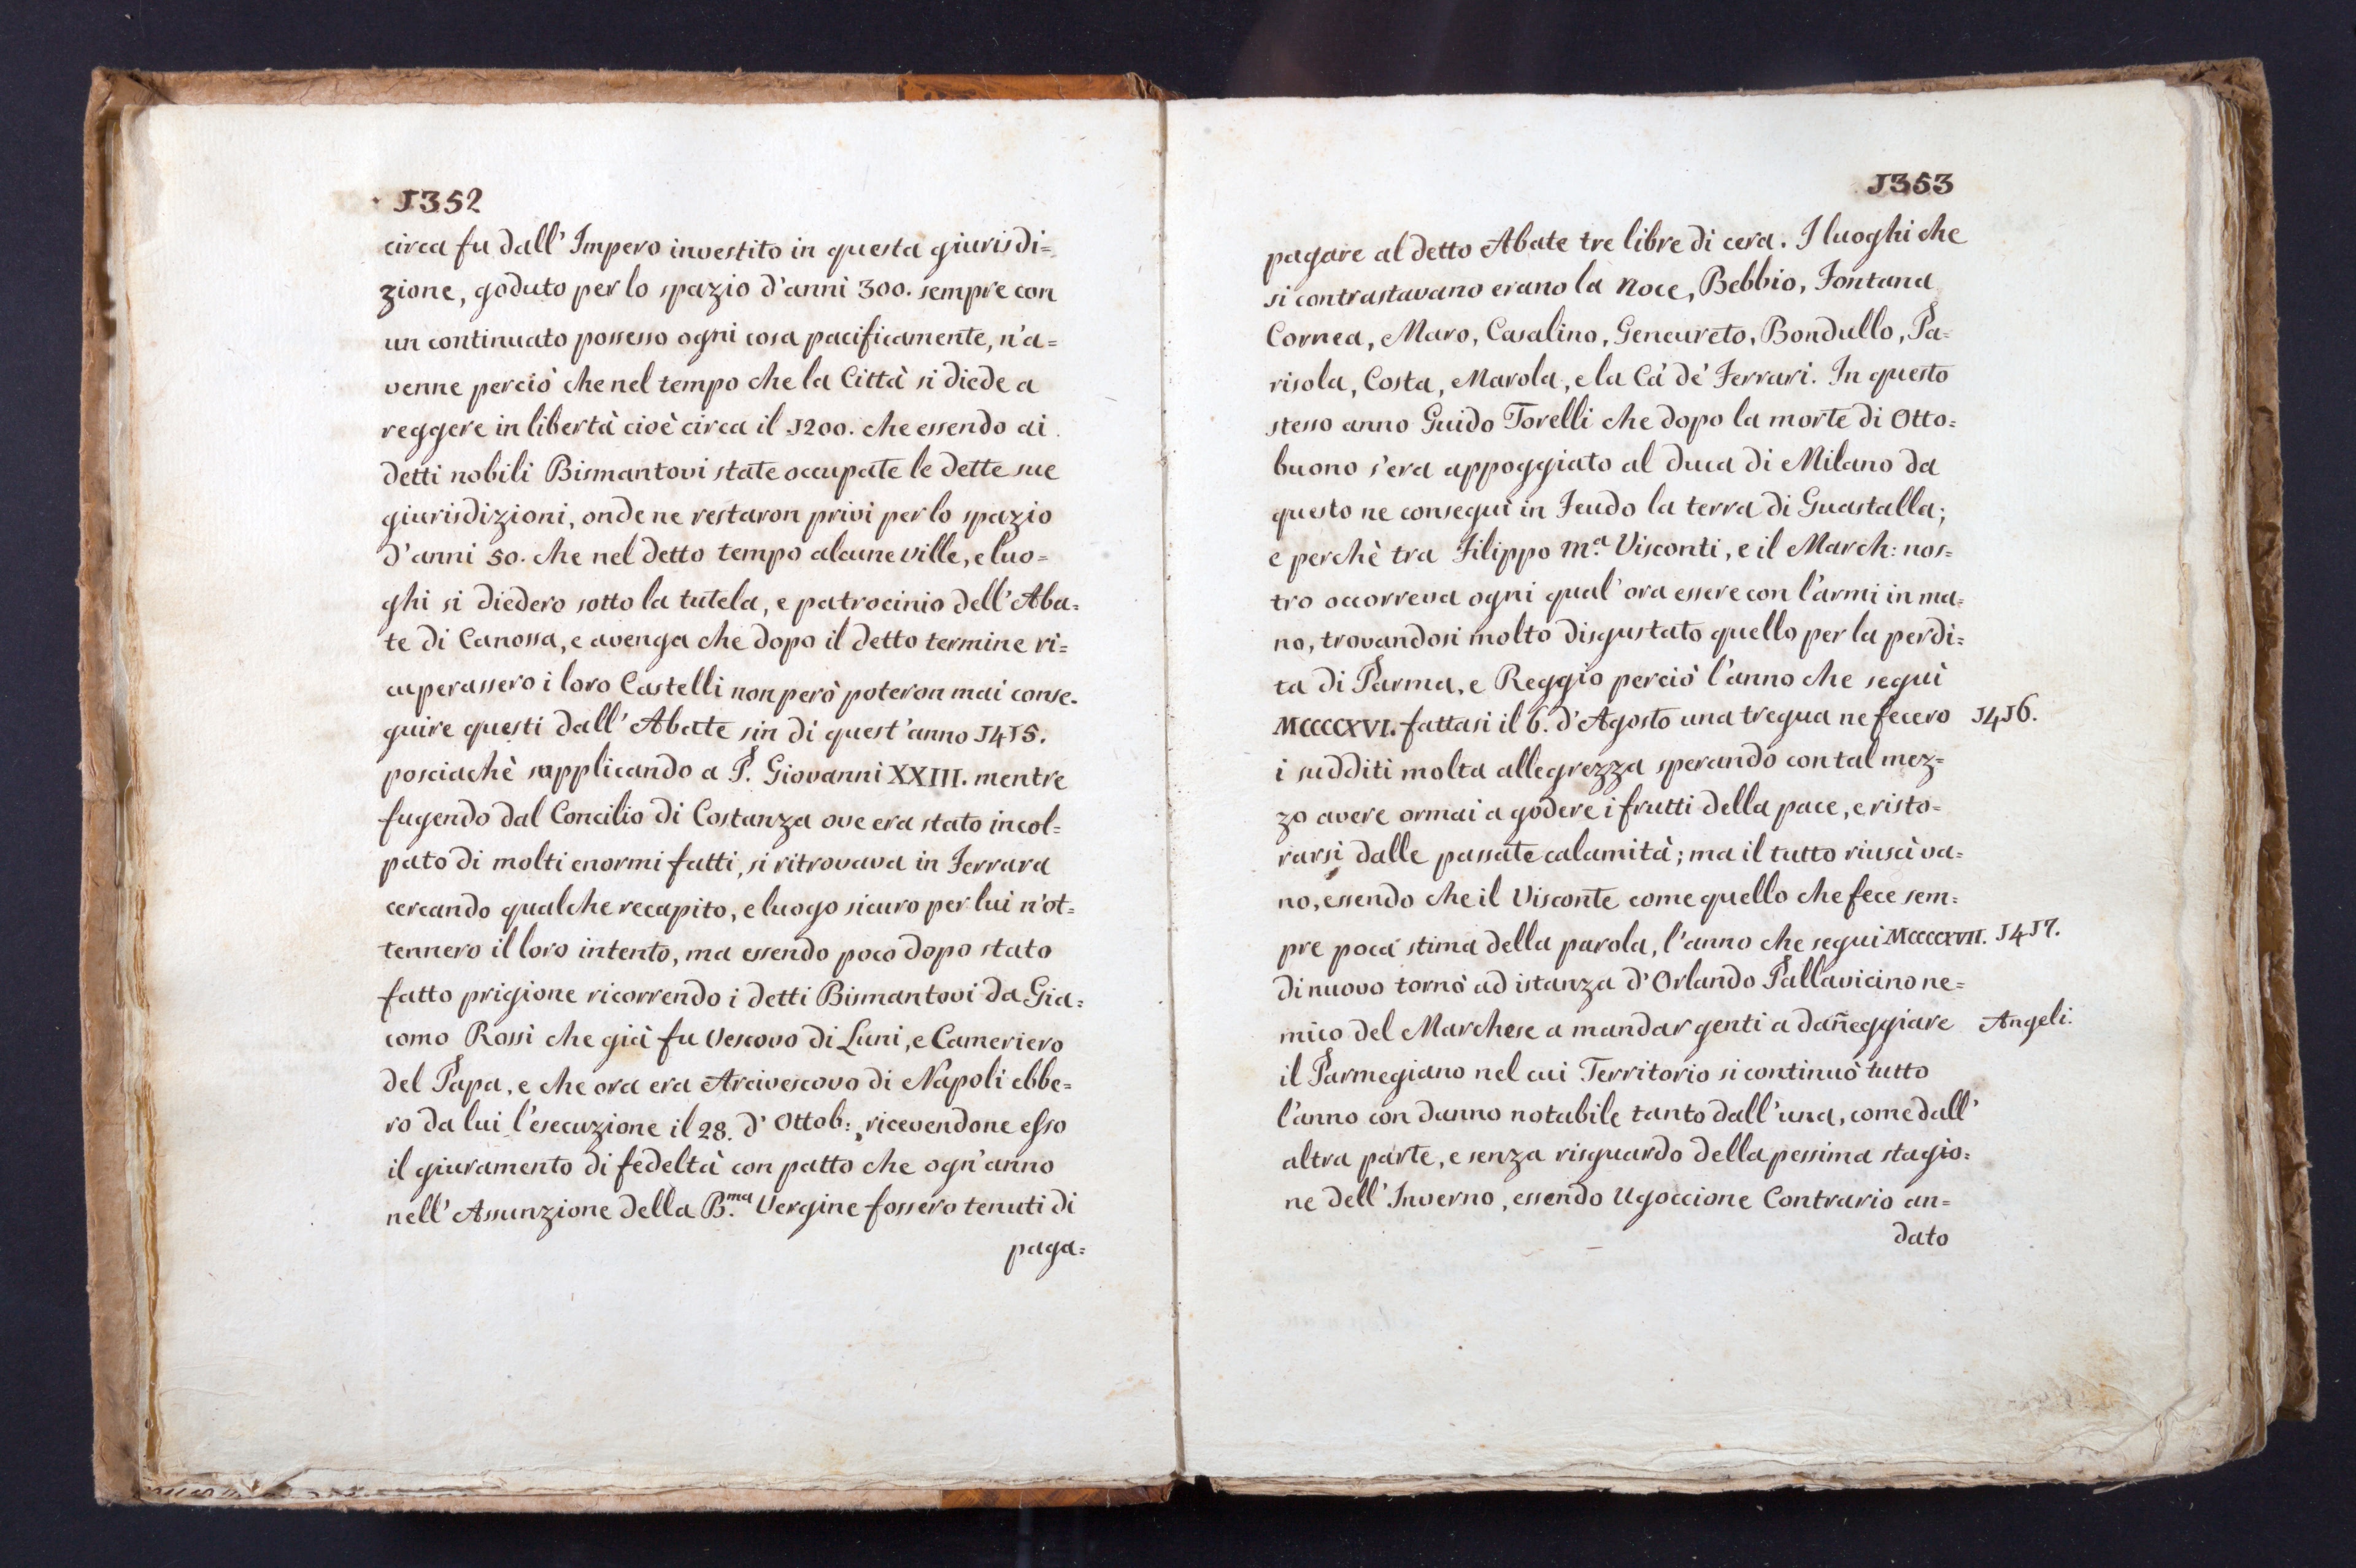 1352
circa fu dall' Impero investito in questa giurisdi=
zione, goduto per lo spazio d'anni 300. sempre con
un continuato possesso ogni cosa pacificamente, n'a=
venne perciò che nel tempo che la Città si diede a
reggere in libertà cioè circa il 1200. che essendo ai
detti nobili Bismantovi state occupate le dette sue
giurisdizioni, onde ne restaron privi per lo spazio
d'anni 50. che nel detto tempo alcune ville, e luo=
ghi si diedero sotto la tutela, e patrocinio dell' Aba=
te di Canossa, e avenga che dopo il detto termine ri=
cuperassero i loro Castelli non però poteron mai conse.
guire questi dall' Abate sin di quest' anno 1415.
posciachè supplicando a P. Giovanni XXIII. mentre
fugendo dal Concilio di Costanza ove era stato incol=
pato di molti enormi fatti, si ritrovava in Ferrara
cercando qualche recapito, e luogo sicuro per lui n'ot=
tennero il loro intento, ma essendo poco dopo stato
fatto prigione ricorrendo i detti Bismantovi da Gia=
como Rossi che già fu Vescovo di Luni, e Cameriero
del Papa, e che ora era Arcivescovo di Napoli ebbe=
ro da lui l'esecuzione il 28. d' Ottob: ricevendone esso
il giuramento di fedeltà con patto che ogn' anno
nell' Assunzione della B.ma Vergine fossero tenuti di
paga=
1353
pagare al detto Abate tre libre di cera. I luoghi che
si contrastavano erano la Noce, Bebbio, Fontana
Cornea, Maro, Casalino, Geneureto, Bondullo, Pa=
risola, Costa, Marola, e la Cà de' Ferrari. In questo
stesso anno Guido Torelli che dopo la morte di Otto=
buono s'era appoggiato al duca di Milano da
questo ne conseguì in Feudo la terra di Guastalla;
e perchè tra Filippo M.a Visconti, e il March: nos=
tro occorreva ogni qual' ora essere con l'armi in ma=
no, trovandosi molto disgustato quello per la perdi=
ta di Parma, e Reggio perciò l'anno che seguì
MCCCCXVI. fattasi il 6. d'Agosto una tregua ne fecero 1416.
i sudditi molta allegrezza sperando con tal mez=
zo avere ormai a godere i frutti della pace, e risto=
rarsi dalle passate calamità; ma il tutto riuscì va=
no, essendo che il Visconte come quello che fece sem=
pre poca stima della parola, l'anno che seguì MCCCCXVII. 1417.
di nuovo tornò ad istanza d'Orlando Pallavicino ne=
mico del Marchese a mandar genti a dañeggiare Angeli.
il Parmegiano nel cui Territorio si continuò tutto
l'anno con danno notabile tanto dall' una, come dall'
altra parte, e senza risguardo della pessima stagio=
ne dell' Inverno, essendo Ugoccione Contrario an=
dato